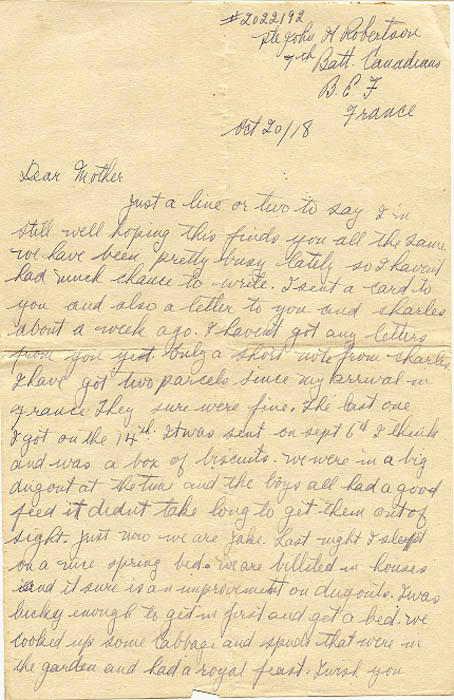 #2022192
Pte John H Robertson
7th Batt. Canadians
B.E.F
France
Oct 20/18
Dear Mother
Just a line or two to say I'm
still well hoping this finds you all the same.
We have been pretty busy lately so I havent
had much chance to write. I sent a card to
you and also a letter to you and Charles
about a week ago. I havent got any letters
from you yet. Only a short note from Charles
I have got two parcels since my arrival in
France They sure were fine. The last one
I got on the 14th. It was sent on Sept 6th I think
and was a box of biscuits. We were in a big
dugout at the time and the boys all had a good
feed it didnt take long to get them out of
sight. Just now we are jake. Last night I slept
on a nice spring bed. We are billited in houses
and it sure is an improvement on dugouts. I was
lucky enough to get in first and get a bed. We
cooked up some cabbage and spuds that were in
the garden and had a royal feast. I wish you